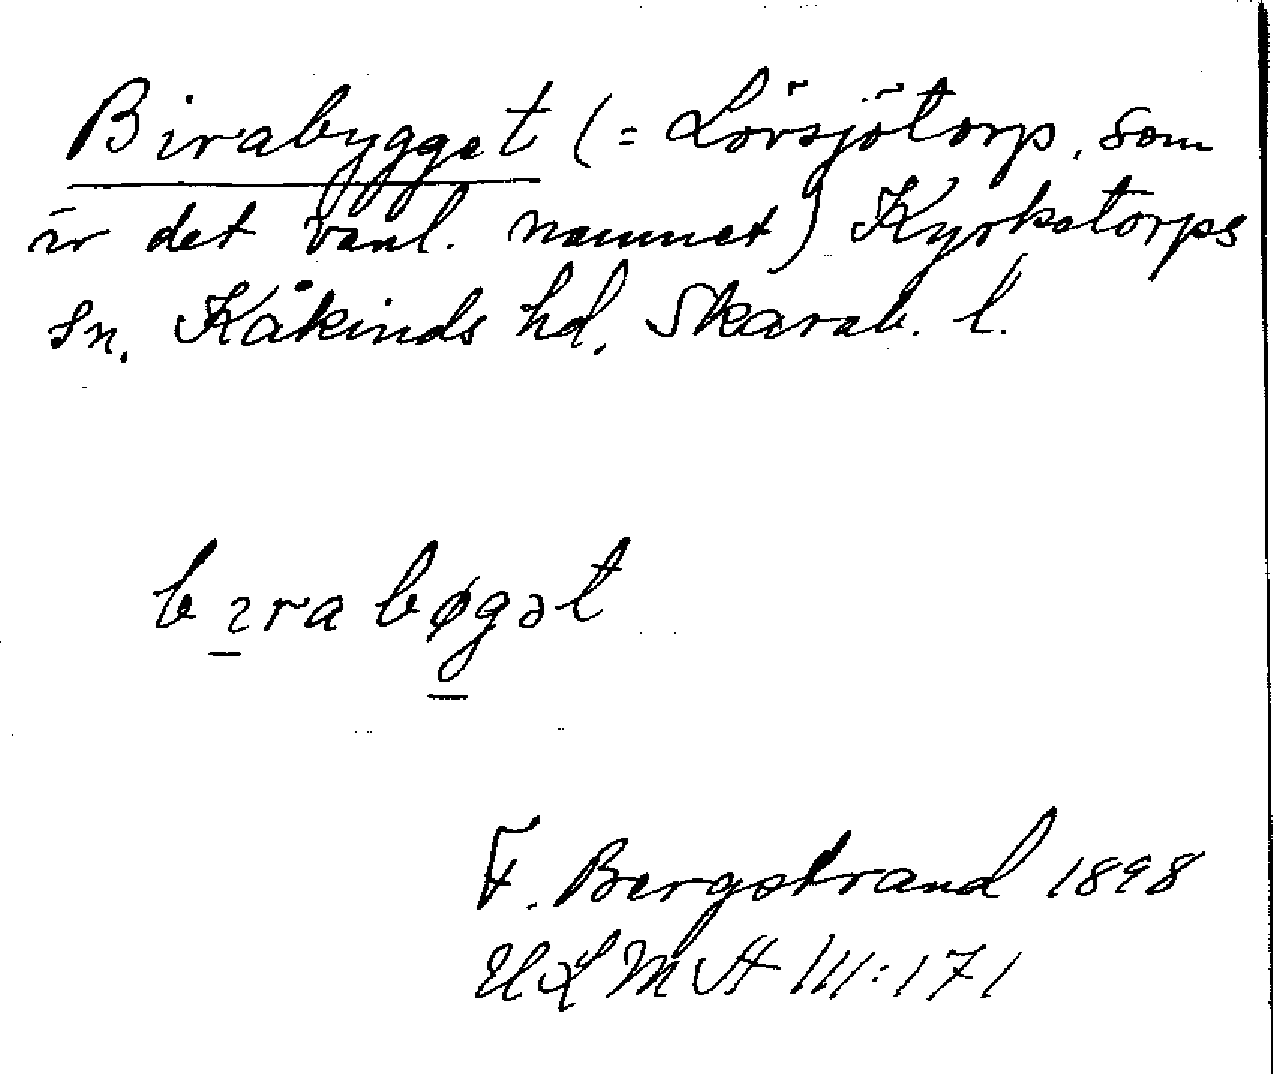 Birabygget (= Lövsjötorp, som
är det vanl. namnet) Kyrketorps
sn. Kåkinds hd. Skarab. l.
bırabøgət
F. Bergstrand 1898
ULMA III:171